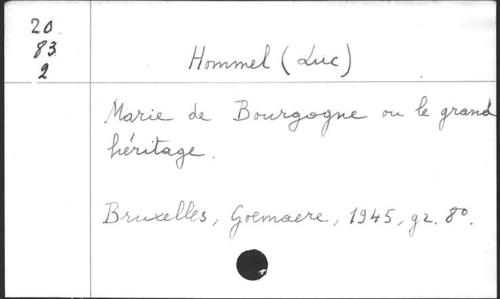 20.
83
2
Hommel (Luc)
Marie de Bourgogne ou le grand
héritage.
Bruxelles, Goemaere, 1945, gr. 8º.